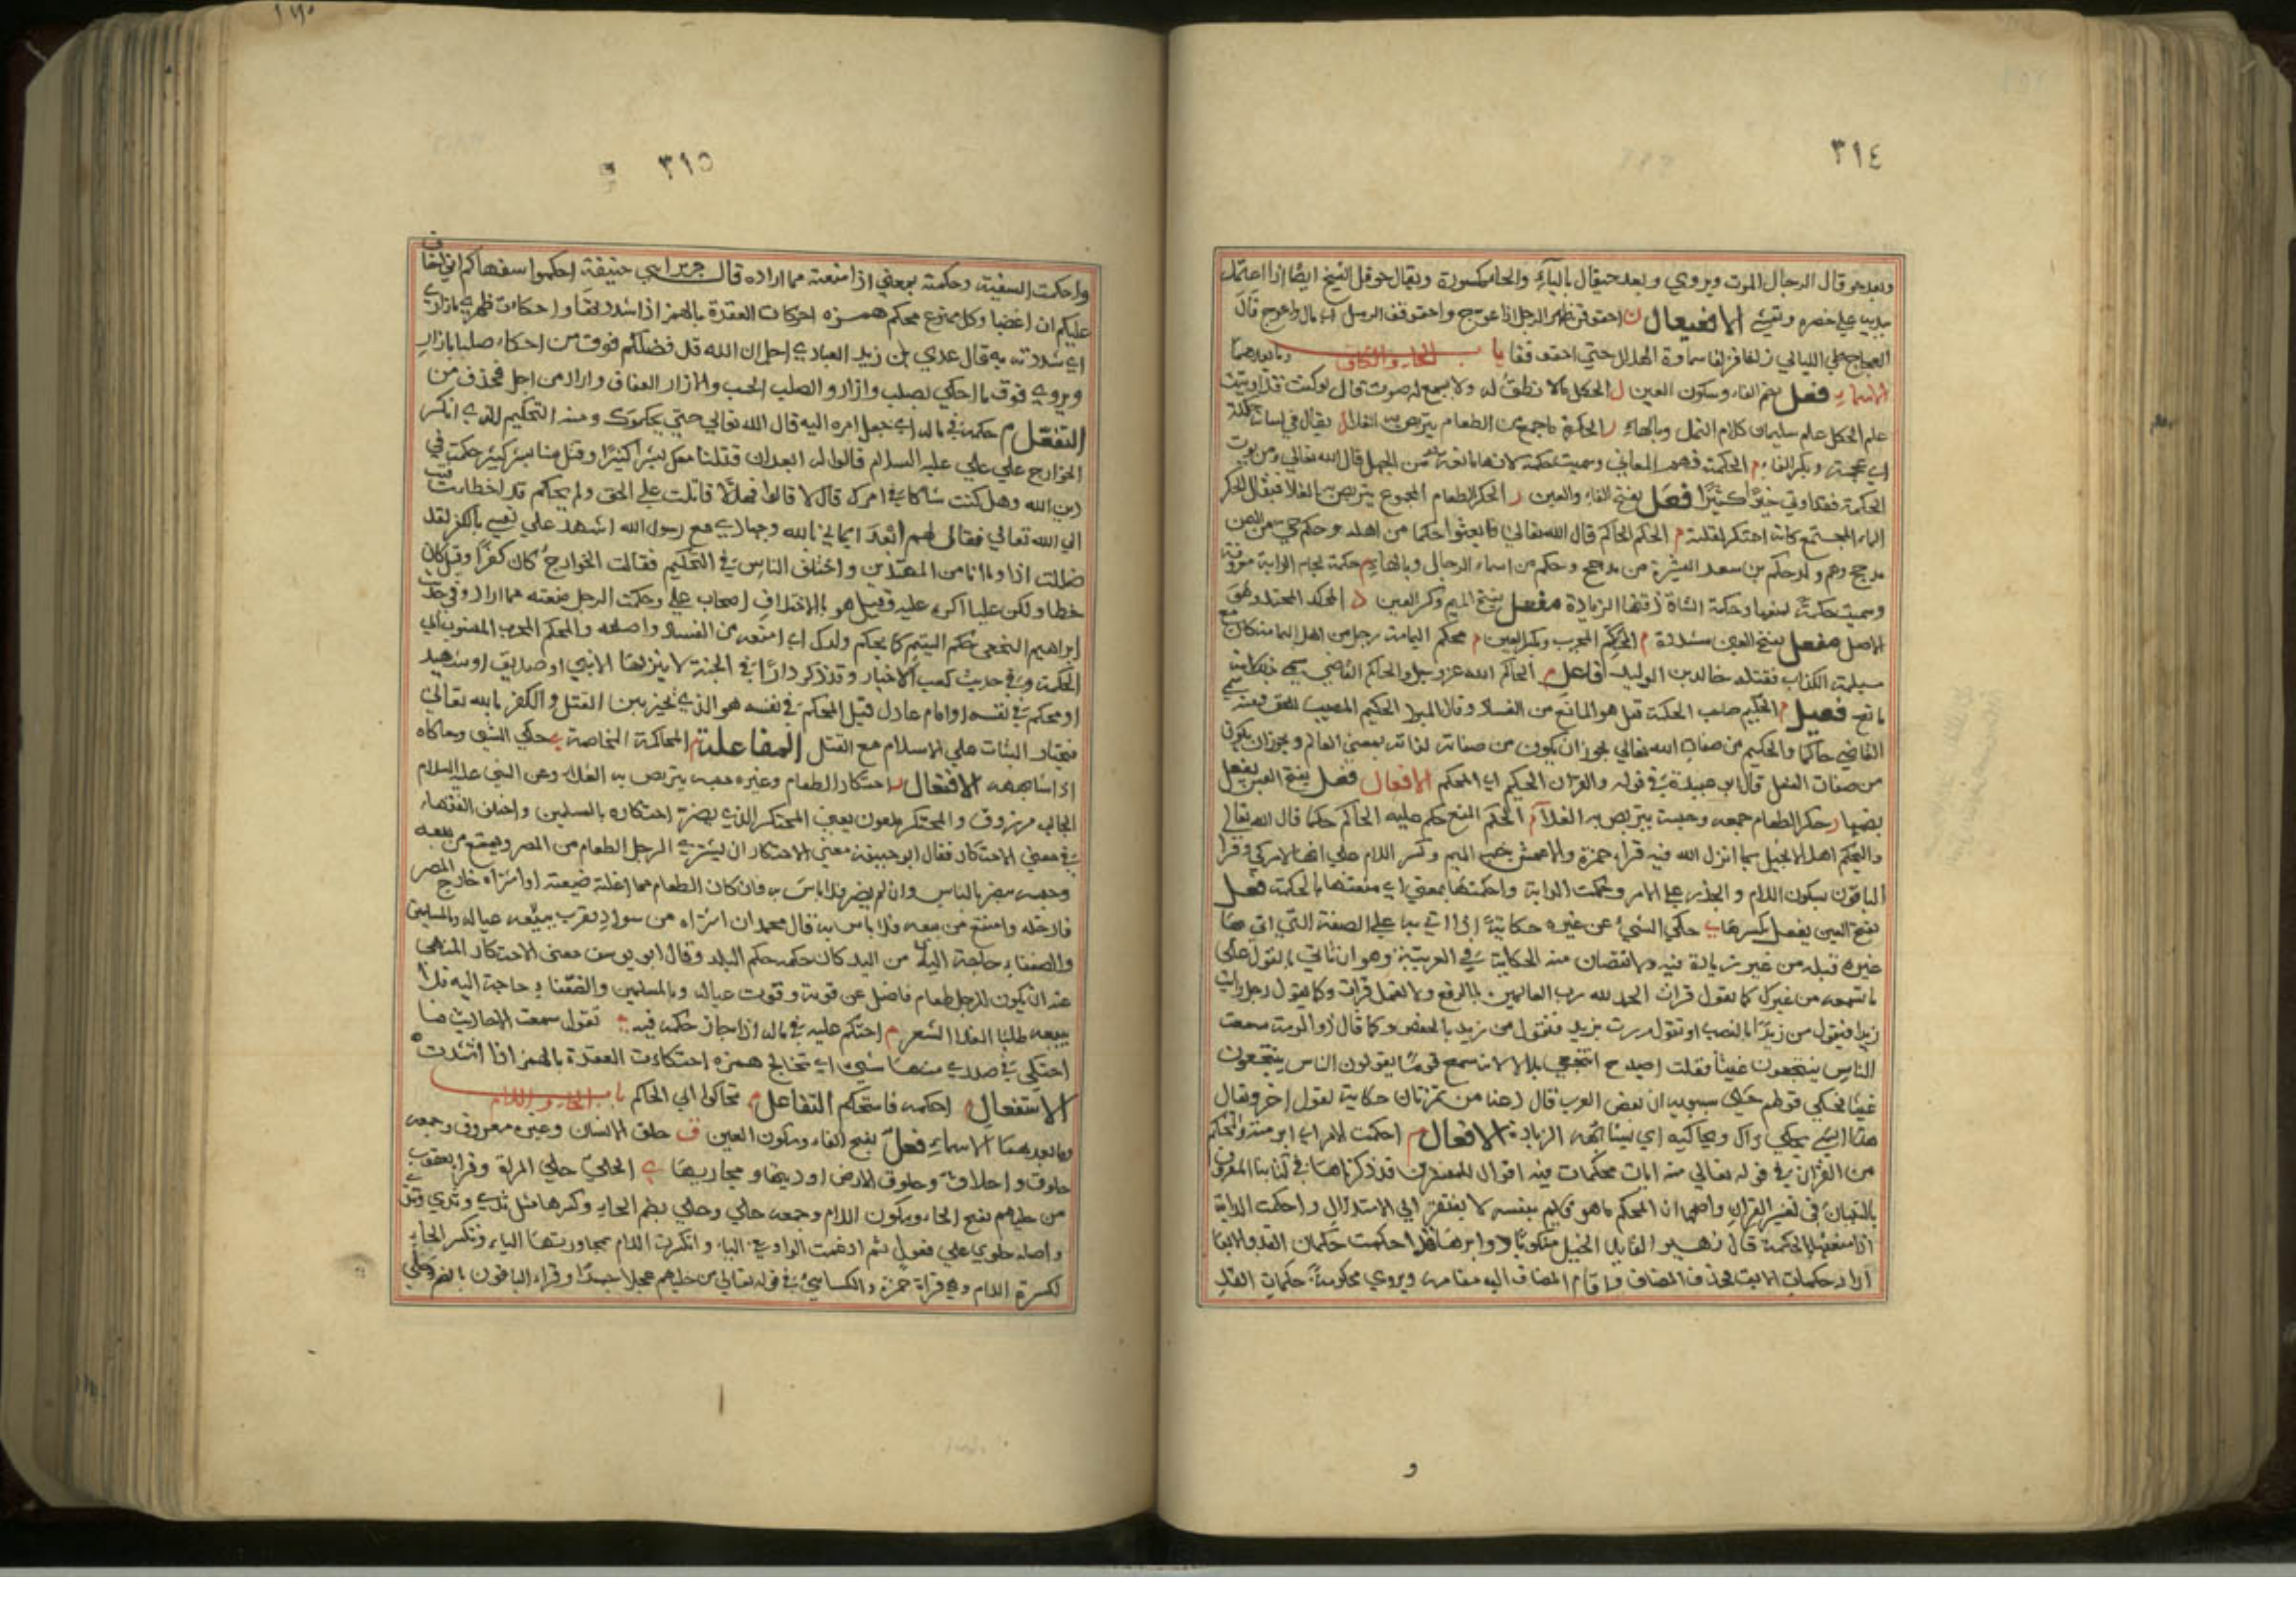 ٣١٤
وبعد حوقال الرجال الموت ويروي وبعد حيقال بالياء والحاء مكسورة ويقال حوقل الشيخ ايضا اذا اعتمد
بيديه علي خصره وتمشي الافعيعال ن احقوقف ظهر الرجل اذا اعوج واحقوقف الرمل اي مال واعوج قال
العجاج طي الليالي زلفا فزلفا سماوة الهلال حتي احقوقفا باب الحاء والكاف وما بعدهما
الاسماء فعل بضم الفاء وسكون العين ل الحكل ما لا نطق له ولا يسمع له صوت قال لو كنت قد اوتيت
علم الحكل علم سليمان كلام النمل وبالهاء ر الحكرة ما جمع من الطعام يتربص به الغلاء ل يقال في لسانه حكلة
اي عجمة وبكسر الفاء م الحكمة فهم المعاني وسميت حكمة لانها مانعة من الجهل قال الله تعالي ومن يوت
الحكمة فقد اوتي خيرا كثيرا فعل بفتح الفاء والعين ر الحكر الطعام المجموع يتربص به الغلا فيقال الحكر
الماء المجتمع كانه احتكر لقلته م الحكم الحاكم قال الله تعالي فابعثوا حكما من اهله وحكم حي من اليمن
مدحج وهم ولد حكم بن سعد العشيرة من مدحج وحكم من اسماء الرجال وبالهاء م حكمة لجام الدابة معروفة
وسميت حكمة لمنعها وحكمة الشاة ذقنها الزيادة مفعل بفتح الميم وكسر العين د المحكد المحتد وهو
الاصل مفعل بفتح العين مشددة م المحكم المجرب وبكسر العين م محكم اليمامة رجل من اهل اليمامة كان مع
مسيلمة الكذاب فقتله خالد بن الوليد فاعل م الحاكم الله عز وجل والحاكم القاضي سمي بذلك لانه
مانع فعيل م الحكيم صاحب الحكمة قيل هو المانع من الفساد وقال المبرد الحكيم المصيب للحق ومنه سمي
القاضي حاكما والحكيم من صفات الله تعالي يجوز ان يكون من صفات لذاته بمعني العالم ويجوز ان يكون
من صفات الفعل قال ابو عبيدة في قوله والقران الحكيم اي المحكم الافعال فعل بفتح العين يفعل
بضمها ر حكر الطعام جمعه وحبسه يتربص به الغلاء م الحكم المنع حكم عليه الحاكم حكما قال الله تعالي
وليحكم اهل الانجيل بما انزل الله فيه قراء حمزة والاعمش بنصب الميم وكسر اللام علي انها لام كي وقرا
الباقون بسكون اللام والجزم علي الامر وحكمت الدابة واحكمتها بمعني اي منعتها بالحكمة فعل
بفتح العين يفعل بكسرها ي حكي الشيء عن غيره حكاية اذا اتي بها علي الصفة التي اتي بها
غيره قبله من غير زيادة فيه ولا نقصان منه الحكاية في العربية وهو ان تاتي بالقول علي
ما تسمعه من غيرك كما تقول قرات الحمد لله رب العالمين بالرفع ولا تعمل قرات وكما يقول رجل رايت
زيدا فيقول من زيدا بالنصب او تقول مررت بزيد فتقول من زيد بالخفض وكما قال ذو الرمة سمعت
الناس ينتجعون غيثا فقلت لصيدح انتجعي بلالا لانه سمع قوما يقولون الناس ينتجعون
غيثا فحكي قولهم حكي سيبويه ان بعض العرب قال دعنا من تمرتان حكاية لقول اخر ويقال
هذا الشي يحكي ذاك ويحاكيه اي يشابهه الزيادة الافعال م احكمت الامر اي ابرمته والمحكم
من القران في قوله تعالي منه ايات محكمات فيه اقوال للمفسرين قد ذكرناها في كتابنا المعروف
بالتبيان في تفسير القران واصحها ان المحكم ما هو قايم بنفسه لا يفتقر الي الاستدلال واحكمت الدابة
اذا منعتها بالحكمة قال زهير القايد الخيل منكوبا دوابرها قد احكمت حكمات القد والابقا
اراد حكمات الابق فحذف المضاف واقام المضاف اليه مقامه ويروي محكومة حكمات القد
و
٣١٥
واحكمت السفيه وحكمته بمعني اذا منعته مما اراده قال جرير ابني حنيفة احكموا سفهاكم اني اخاف
عليكم ان اغضبا وكل ممنوع محكم همزه احكات العقدة بالهمز اذا شدد لقا واحكات ظهري بازاري
اي شددته به قال عدي بن زيد العبادي اجل ان الله قد فضلكم فوق من احكاء صلبا بازار
ويروي فوق ما احكي بصلب وازار والصلب الحسب والازار العفاف واراد من اجل فحذف من
التفعل م حكمه في ماله اي جعل امره اليه قال الله تعالي حتي يحكموك ومنه التحكيم الذي انكر
الخوارج علي علي عليه السلام قالوا له ابعد ان قتلنا معك بشرا كثيرا وقتل منا بشر كثير حكمت في
دين الله وهل كنت شاكا في امرك قال لا قالوا فهلا قاتلت علي الحق ولم يحكم قد اخطات فتب
الي الله تعالي فقال لهم ابعد ايماني بالله وجهادي مع رسول الله اشهد علي نفسي بالكفر لقد
ضللت اذا وما انا من المهتدين واختلف الناس في التحكيم فقالت الخوارج كان كفرا وقيل كان
خطا ولكن عليا اكره عليه وقيل هو بالاختلاف اصحاب علي وحكمت الرجل منعته مما اراد وفي حديث
ابراهيم النخعي حكم اليتيم كما يحكم ولدك اي امنعه من الفساد واصلحه والمحكم المجرب المنسوب الي
الحكمة وفي حديث كعب الاخبار وقد ذكر دارا في الجنة لا ينزلها الا نبي او صديق او شهيد
او محكم في نفسه او امام عادل قيل المحكم في نفسه هو الذي يخير بين القتل والكفر بالله تعالي
فيختار الثبات علي الاسلام مع القتل المفاعلة م المحاكمة المخاصمة ي حكي الشي وحاكاه
اذا شابهه الافتعال ر احتكار الطعام وغيره حبسه يتربص به الغلاء وعن النبي عليه السلام
الجالب مرزوق والمحتكر ملعون يعني المحتكر الذي يضر احتكاره بالمسلمين واختلف الفقهاء
في معني الاحتكار فقال ابو حنيفة معني الاحتكار ان يشتري الرجل الطعام من المصر ويمتنع من بيعه
وحبسه مضر بالناس وان لم يضر فلا باس به فان كان الطعام مما اغلته ضيعته او اشتراه خارج المصر
فادخله وامتنع من بيعه فلا باس به قال محمد ان اشتراه من سواد يقرب يبيعه عياله والمسلمين
والضعفاء حاجة اليه من البلد كان حكمه حكم البلد وقال ابو يوسف معني الاحتكار المنهي
عنه ان يكون للرجل طعام فاضل عن قوته وقوت عياله وبالمسلمين والضعفاء حاجة اليه فلا
يبيعه طلبا لغلاء السعر م احتكم عليه في ماله اذا جاز حكمه فيه ي تقول سمعت الاحاديث فما
احتكي في صدري منها شيء اي تخالج همزه احتكات العقدة بالهمز اذا اشتدت
الاستفعال م احكمه فاستحكم التفاعل م تحاكموا الي الحاكم باب الحاء واللام
وما بعدهما الاسماء فعل بفتح الفاء وسكون العين ق حلق الانسان وغيره معروف وجمعه
حلوق واحلاق وحلوق الارض اوديتها ومجاريها ي الحلي حلي المراة وقرا يعقوب
من حليهم بفتح الحاء وسكون اللام وجمعه حلي وحلي بضم الحاء وكسرها مثل ثدي وثدي وثدي
واصله حلوي علي فعول ثم ادغمت الواو في الياء وانكسرت اللام بمجاورتها الياء وتكسر الحاء
لكسرة اللام وهي قراة حمزة والكسائي في قوله تعالي من حليهم عجلا جسدا وقراء الباقون بالضم وحلي